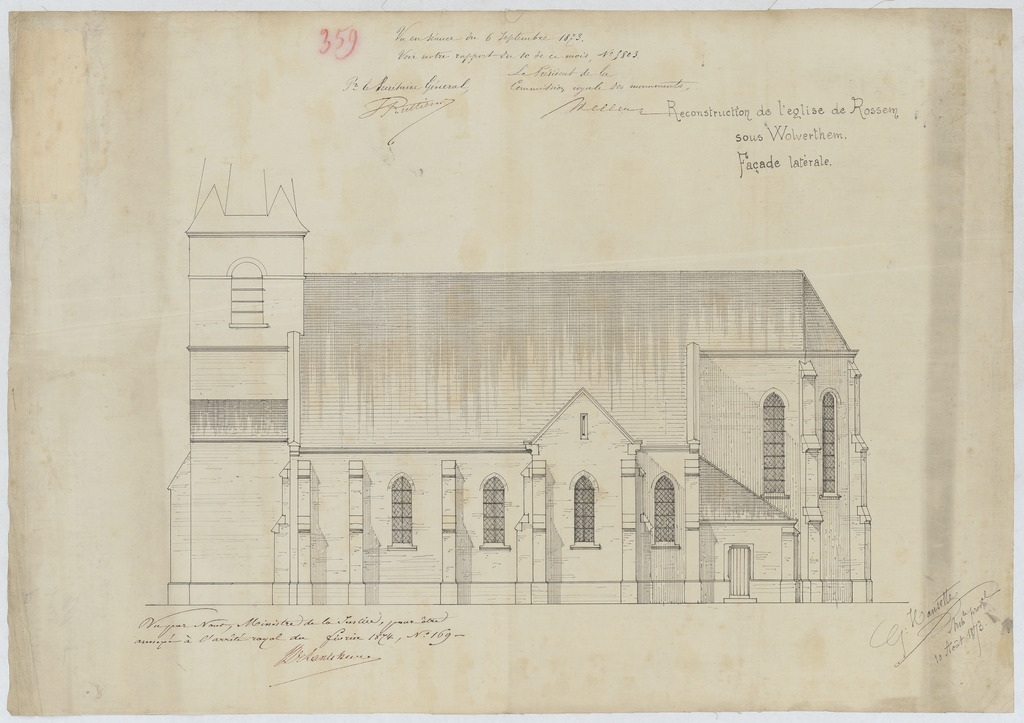 359
Vu en séance du 6 Septembre 1873.
Voir notre rapport du 10 de ce mois, N° 5803
Le Président de la
Commission royale des monuments,
Pr le Secrétaire Général,
6
Reconstruction de l'eglise de Rossem
sous Wolverthem.
Façade latérale.
Vu par Nous, Ministre de la Justice, pour être
annexé à l'arrêté royal du février 1874, N° 169 –
10 Août 1873.